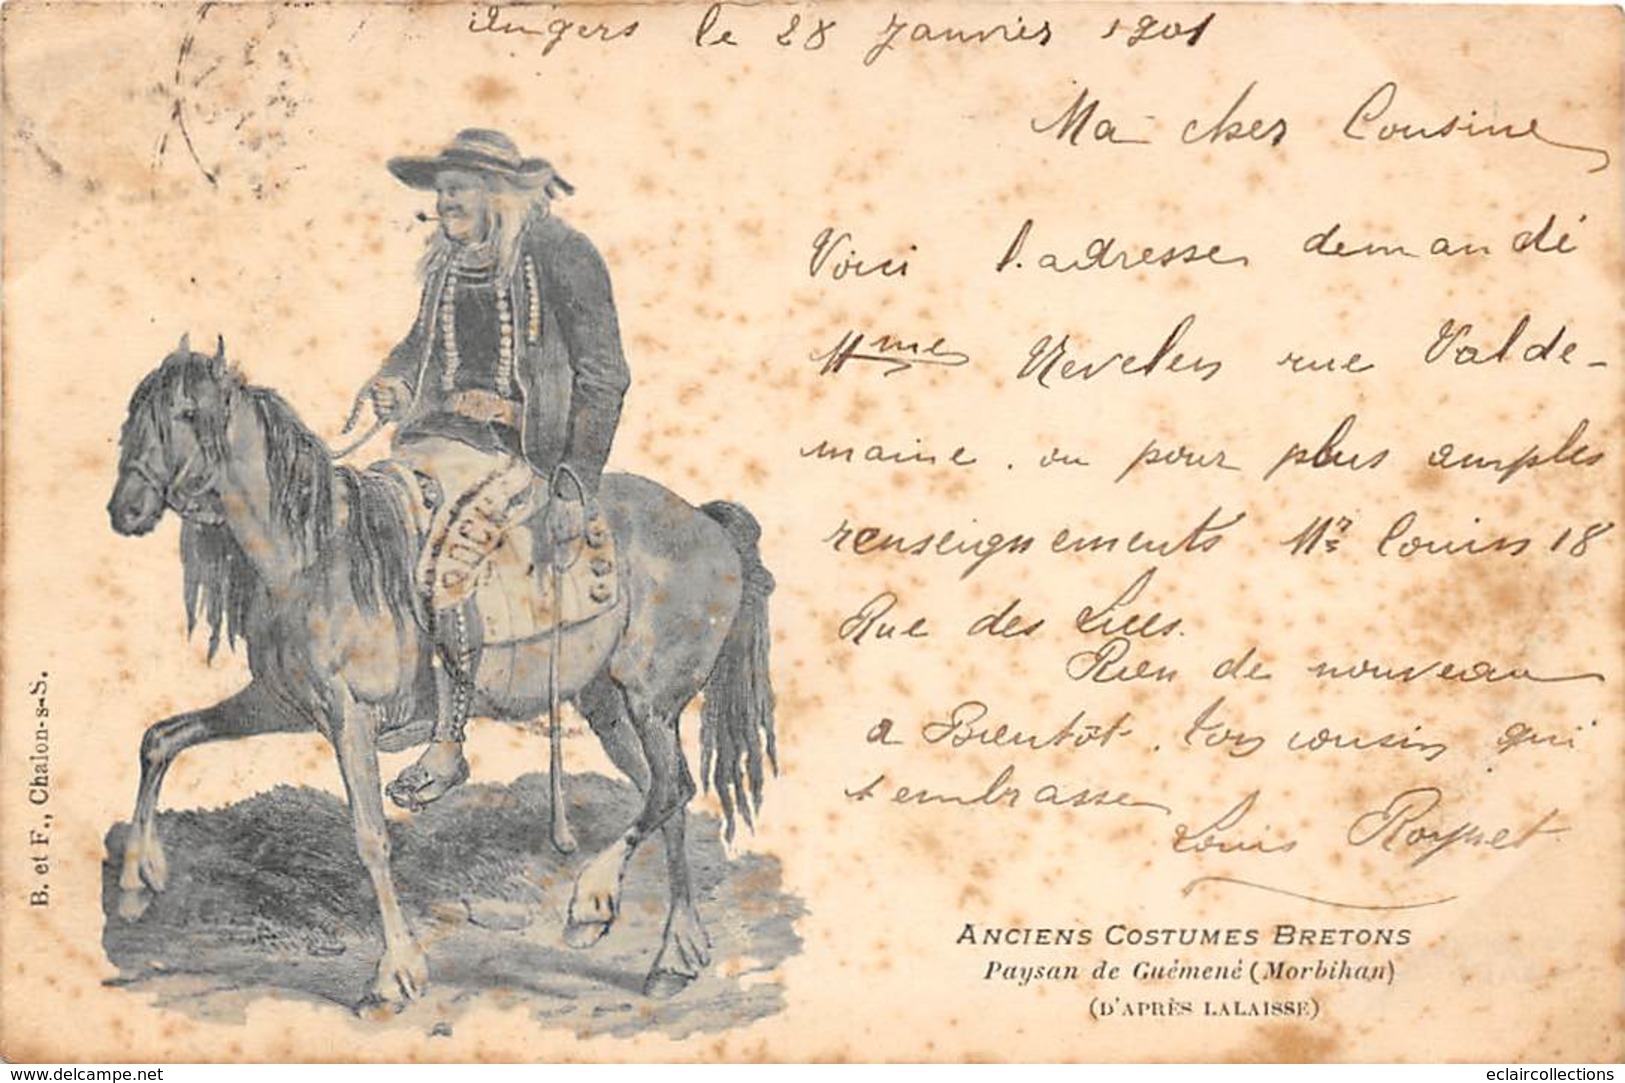 Angers le 28 Janvier 1901
Ma cher Cousine
Voici l'adresse demandé
Mme rue Valde-
maine. ou pour plus amples
renseignements Mr Couin 18
Rue des Lices.
Rien de nouveau
a Bientôt. Ton cousin qui
t embrasse
Louis
ANCIENS COSTUMES BRETONS
Paysan de Guémené (Morbihan)
(D'APRÈS LALAISSE)
B. et F., Chalon-s-S.
www.delcampe.net
eclaircollections